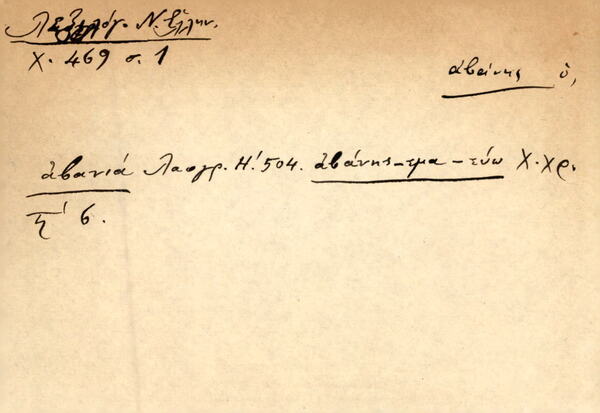 Λεξιλόγ. Ν. Ἑλλην.
Χ. 469 σ. 1
ἀβάνης ὁ,
ἀβανιά Λαογρ. Η΄ 504. ἀβάνης-τμα-εύω Χ. Χρ.
6.